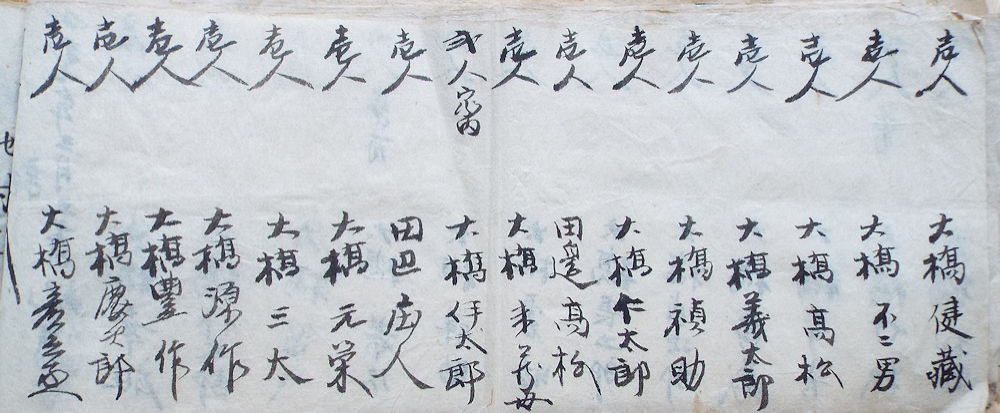 壱人 大橋健藏
壱人 大橋不二男
壱人 大橋高松
壱人 大橋義太郎
壱人 大橋禎助
壱人 大橋仁太郎
壱人 田邉高松
壱人 大橋
弍人 大橋伊太郎
壱人 田辺
壱人 大橋元栄
壱人 大橋三太
壱人 大橋源作
壱人 大橋豊作
壱人 大橋慶次郎
壱人 大橋